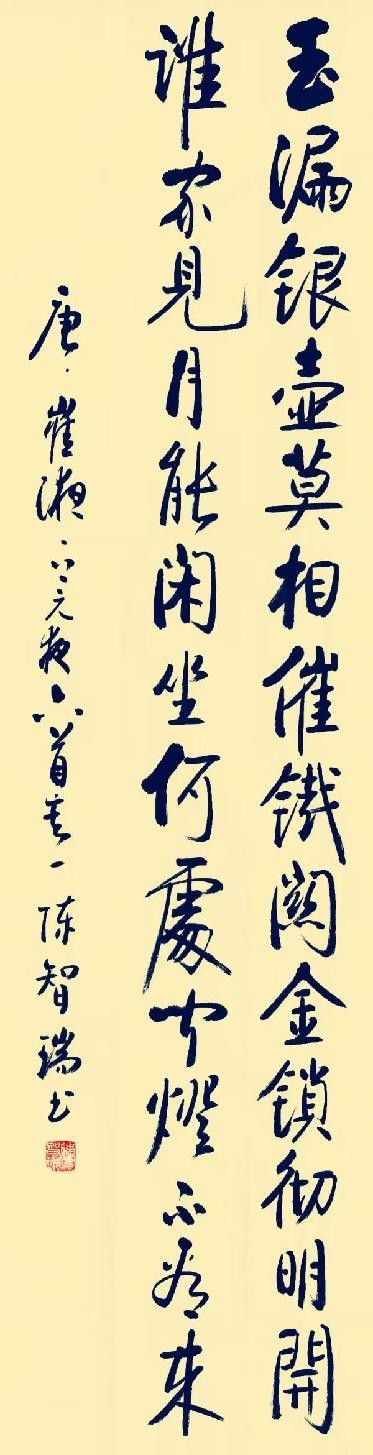 玉漏银壶莫相催铁關金锁彻明開
谁家見月能闲坐何處闻燈不看来
唐·崔湜·上元夜六首其一陈智瑞书